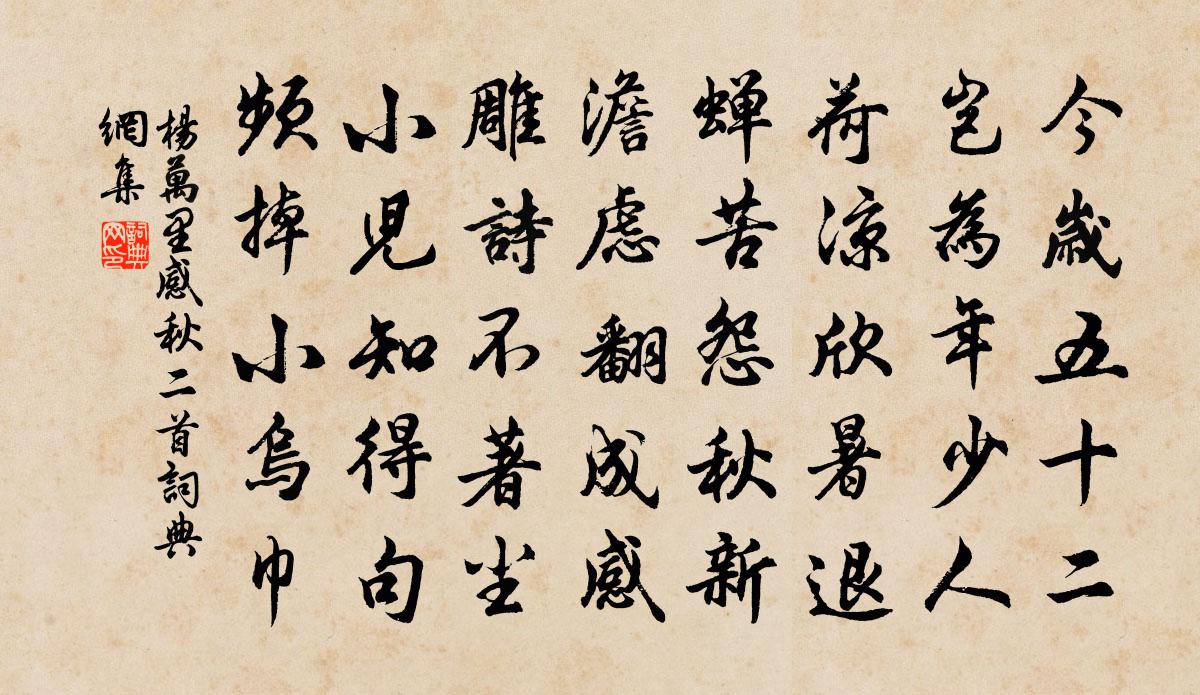 今歲五十二
豈為年少人
荷涼欣暑退
蝉苦怨秋新
澹慮翻成感
雕詩不著尘
小児知得句
頻掉小烏巾
楊萬里感秋二首詞典
網集
詞典
网印